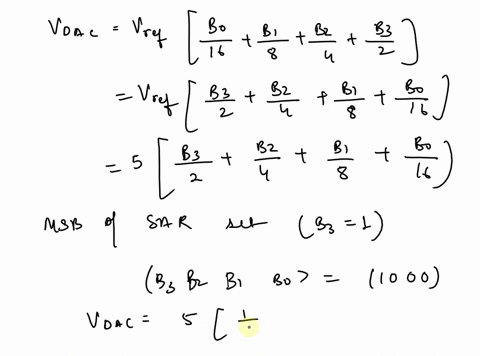 V_DAC = V_ref [ B0/16 + B1/8 + B2/4 + B3/2 ]
= V_ref [ B3/2 + B2/4 + B1/8 + B0/16 )
= 5 [ B3/2 + B2/4 + B1/8 + B0/16 )
MSB of SAR set (B3 = 1)
(B3 B2 B1 B0> = (1000)
V_DAC = 5 [ 1/